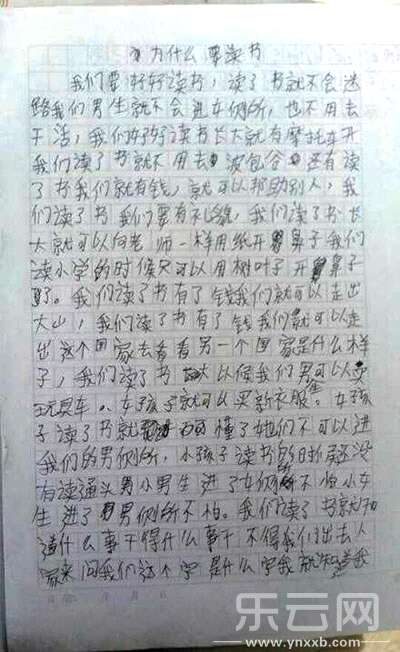 为什么要读书
我们要好好读书，读了书就不会迷
路我们男生就不会进女侧所，也不用去
干活，我们好好读书长大就有摩托车开
我们读了书就不用去波包谷还有读
了书我们就有钱，就可以帮助别人，我
们读了书我们要有礼貌，我们读了书长
大就可以向老师一样用纸开鼻子我们
读小学的时候只可以用树叶子开鼻子
。我们读了书有了钱我们就可以走出
大山，我们读了书有了钱我们就可以走
出这个国家去看看另一个国家是什么样
子，我们读了书大以侯我们男可以
玩具车。女孩子就可以买新衣服。女孩
子读了书就懂了她们不可以进
我们的男侧所，小孩子读书的时侯还没
有读通头男小男生进了女侧所不怕小女
生进了男侧所不怕。我们读了书就知
道什么事干得什么事干不得我们出去人
家来问我们这个字是什么字我就知道我
乐云网
www.ynxxb.com